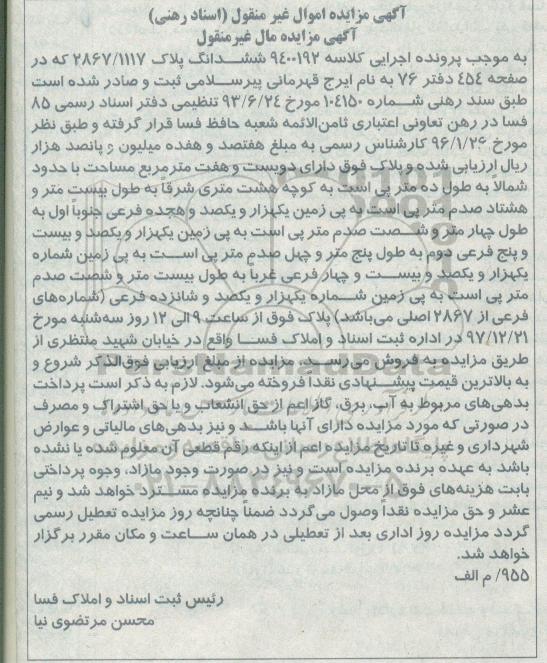 آگهی مزایده اموال غیر منقول (اسناد رهنی)
آگهی مزایده مال غیرمنقول
به موجب پرونده اجرایی کلاسه ۹۴۰۰۱۹۲ ششدانگ پلاک ۲۸۶۷/۱۱۱۷ که در
صفحه ۴۵۴ دفتر ۷۶ به نام ایرج قهرمانی پیرسلامی ثبت و صادر شده است
طبق سند رهنی شماره ۱۰۴۱۵۰ مورخ ۹۳/۶/۲۴ تنظیمی دفتر اسناد رسمی ۸۵
فسا در رهن تعاونی اعتباری ثامن‌الائمه شعبه حافظ فسا قرار گرفته و طبق نظر
مورخ ۹۶/۱/۲۶ کارشناس رسمی به مبلغ هفتصد و هفده میلیون و پانصد هزار
ریال ارزیابی شده و پلاک فوق دارای دویست و هفت مترمربع مساحت با حدود
شمالاً به طول ده متر پی است به کوچه هشت متری شرقاً به طول بیست متر و
هشتاد صدم متر پی است به پی زمین یکهزار و یکصد و هجده فرعی جنوباً اول به
طول چهار متر و شصت صدم متر پی است به پی زمین یکهزار و یکصد و بیست
و پنج فرعی دوم به طول پنج متر و چهل صدم متر پی است به پی زمین شماره
یکهزار و یکصد و بیست و چهار فرعی غرباً به طول بیست متر و شصت صدم
متر پی است به پی زمین شماره یکهزار و یکصد و شانزده فرعی (شماره‌های
فرعی از ۲۸۶۷ اصلی می‌باشد) پلاک فوق از ساعت ۹ الی ۱۲ روز سه‌شنبه مورخ
۹۷/۱۲/۲۱ در اداره ثبت اسناد و املاک فسا واقع در خیابان شهید منتظری از
طریق مزایده به فروش می‌رسد. مزایده از مبلغ ارزیابی فوق‌الذکر شروع و
به بالاترین قیمت پیشنهادی نقدا فروخته می‌شود. لازم به ذکر است پرداخت
بدهی‌های مربوط به آب، برق، گاز اعم از حق انشعاب و یا حق اشتراک و مصرف
در صورتی که مورد مزایده دارای آنها باشد و نیز بدهی‌های مالیاتی و عوارض
شهرداری و غیره تا تاریخ مزایده اعم از اینکه رقم قطعی آن معلوم شده یا نشده
باشد به عهده برنده مزایده است و نیز در صورت وجود مازاد، وجوه پرداختی
بابت هزینه‌های فوق از محل مازاد به برنده مزایده مسترد خواهد شد و نیم
عشر و حق مزایده نقداً وصول می‌گردد ضمناً چنانچه روز مزایده تعطیل رسمی
گردد مزایده روز اداری بعد از تعطیلی در همان ساعت و مکان مقرر برگزار
خواهد شد.
۹۵۵/ م الف
رئیس ثبت اسناد و املاک فسا
محسن مرتضوی نیا